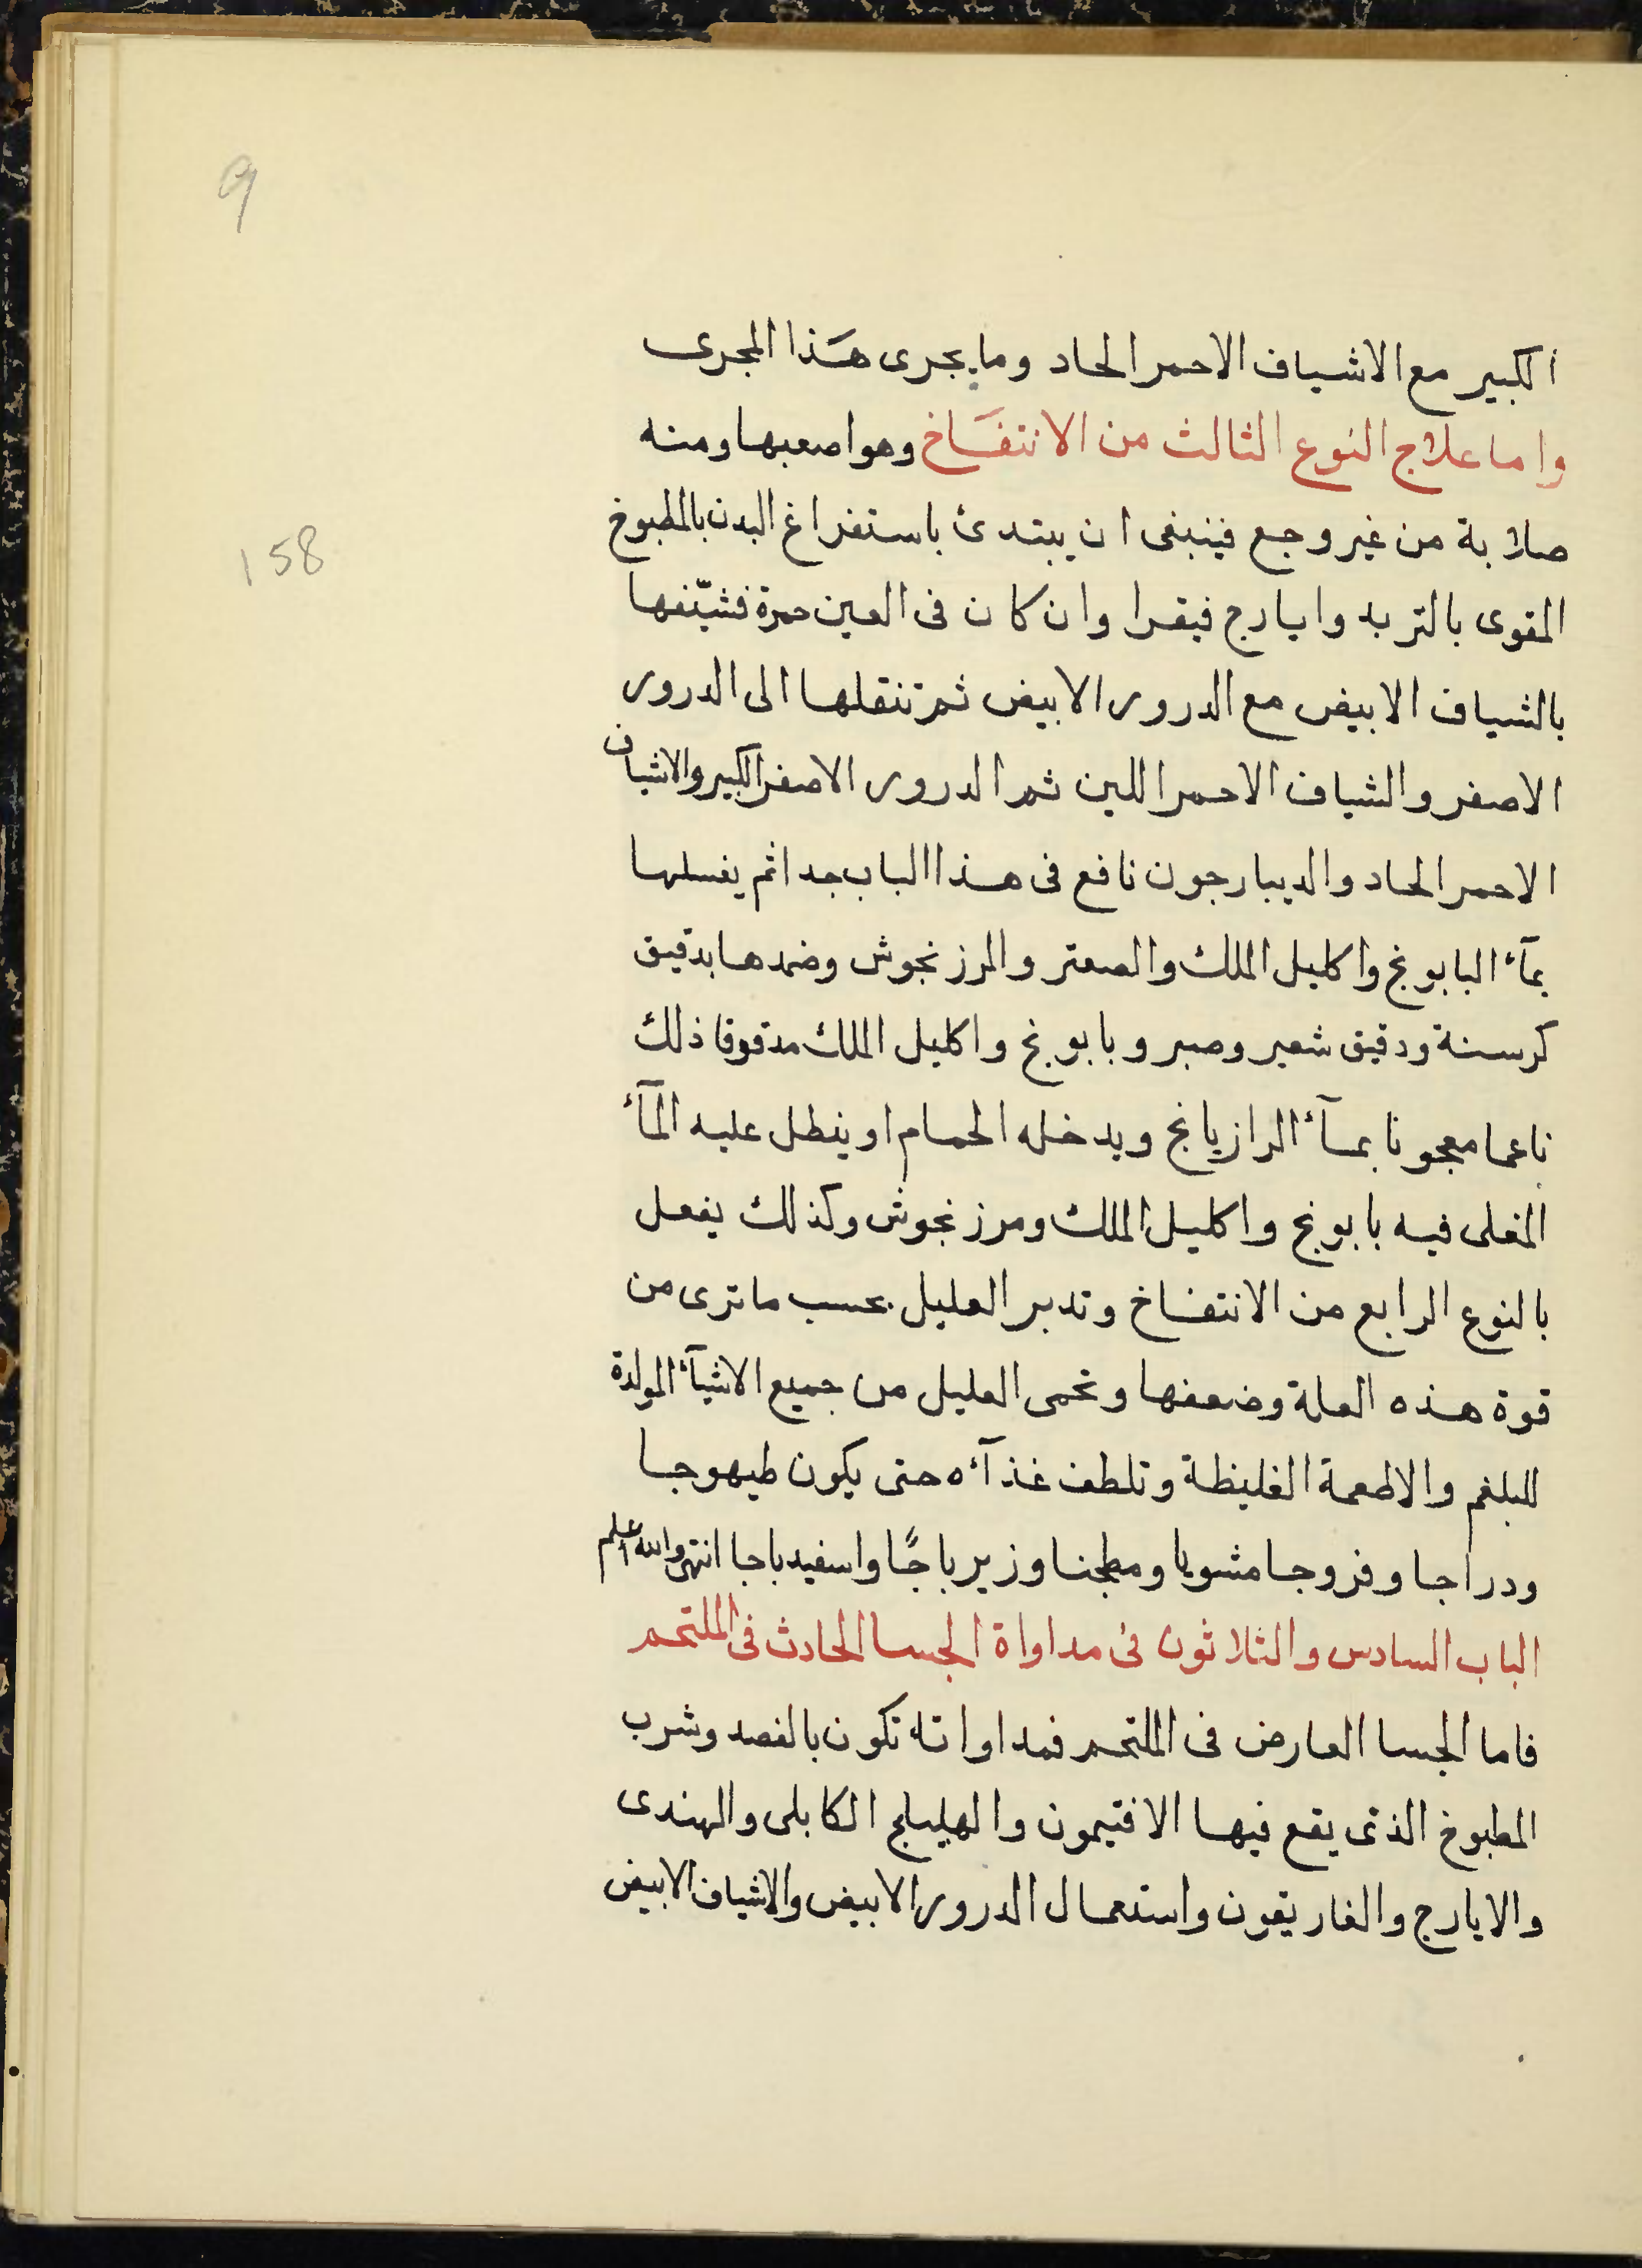 9
الكبير مع الاشياف الاحمر الحاد وما يجرى هَذا المجرى
واما علاج النوع الثالث من الانتفَاخ وهو اصعبها ومنه
158
صلابة من غير وجع فينبغى ان يبتدئ باستفراغ البدن بالمطبوخ
المقوى بالتربد وايارج فيقرا وان كان فى العين حمرة فشيّفها
بالشياف الابيض مع الدرور الابيض ثم تنقلها الى الدرور
الاصفر والشياف الاحمر اللين ثم الدرور الاصفر الكبير والاشياف
الاحمر الحاد والديبارجون نافع فى هذا الباب جدا ثم يغسلها
بمآء البابونج واكليل الملك والصعتر والمرزنجوش وضمدها بدقيق
كرسنة ودقيق شعير وصبر وبابونج واكليل الملك مدقوقا ذلك
ناعما معجونا بمآء الرازيانج ويدخله الحمام او ينطل عليه المآء
المغلى فيه بابونج واكليل الملك ومرزنجوش وكذلك يفعل
بالنوع الرابع من الانتفاخ وتدبر العليل بحسب ما ترى من
قوة هذه العلة وضعفها وتحمى العليل من جميع الاشيآء المولدة
للبلغم والاطعمة الغليظة وتلطف غذآءه حتى يكون طيهوجا
ودراجا وفروجا مشويا ومطجنا وزيرباجًا واسفيدباجا انتهى والله اعلم
الباب السادس والثلاثون فى مداواة الجسا الحادث فى الملتحم
فاما الجسا العارض فى الملتحم فمداواته تكون بالفصد وشرب
المطبوخ الذى يقع فيها الافتيمون والهليلج الكابلى والهندى
والايارج والغاريقون واستعمال الدرور الابيض والاشياف الابيض